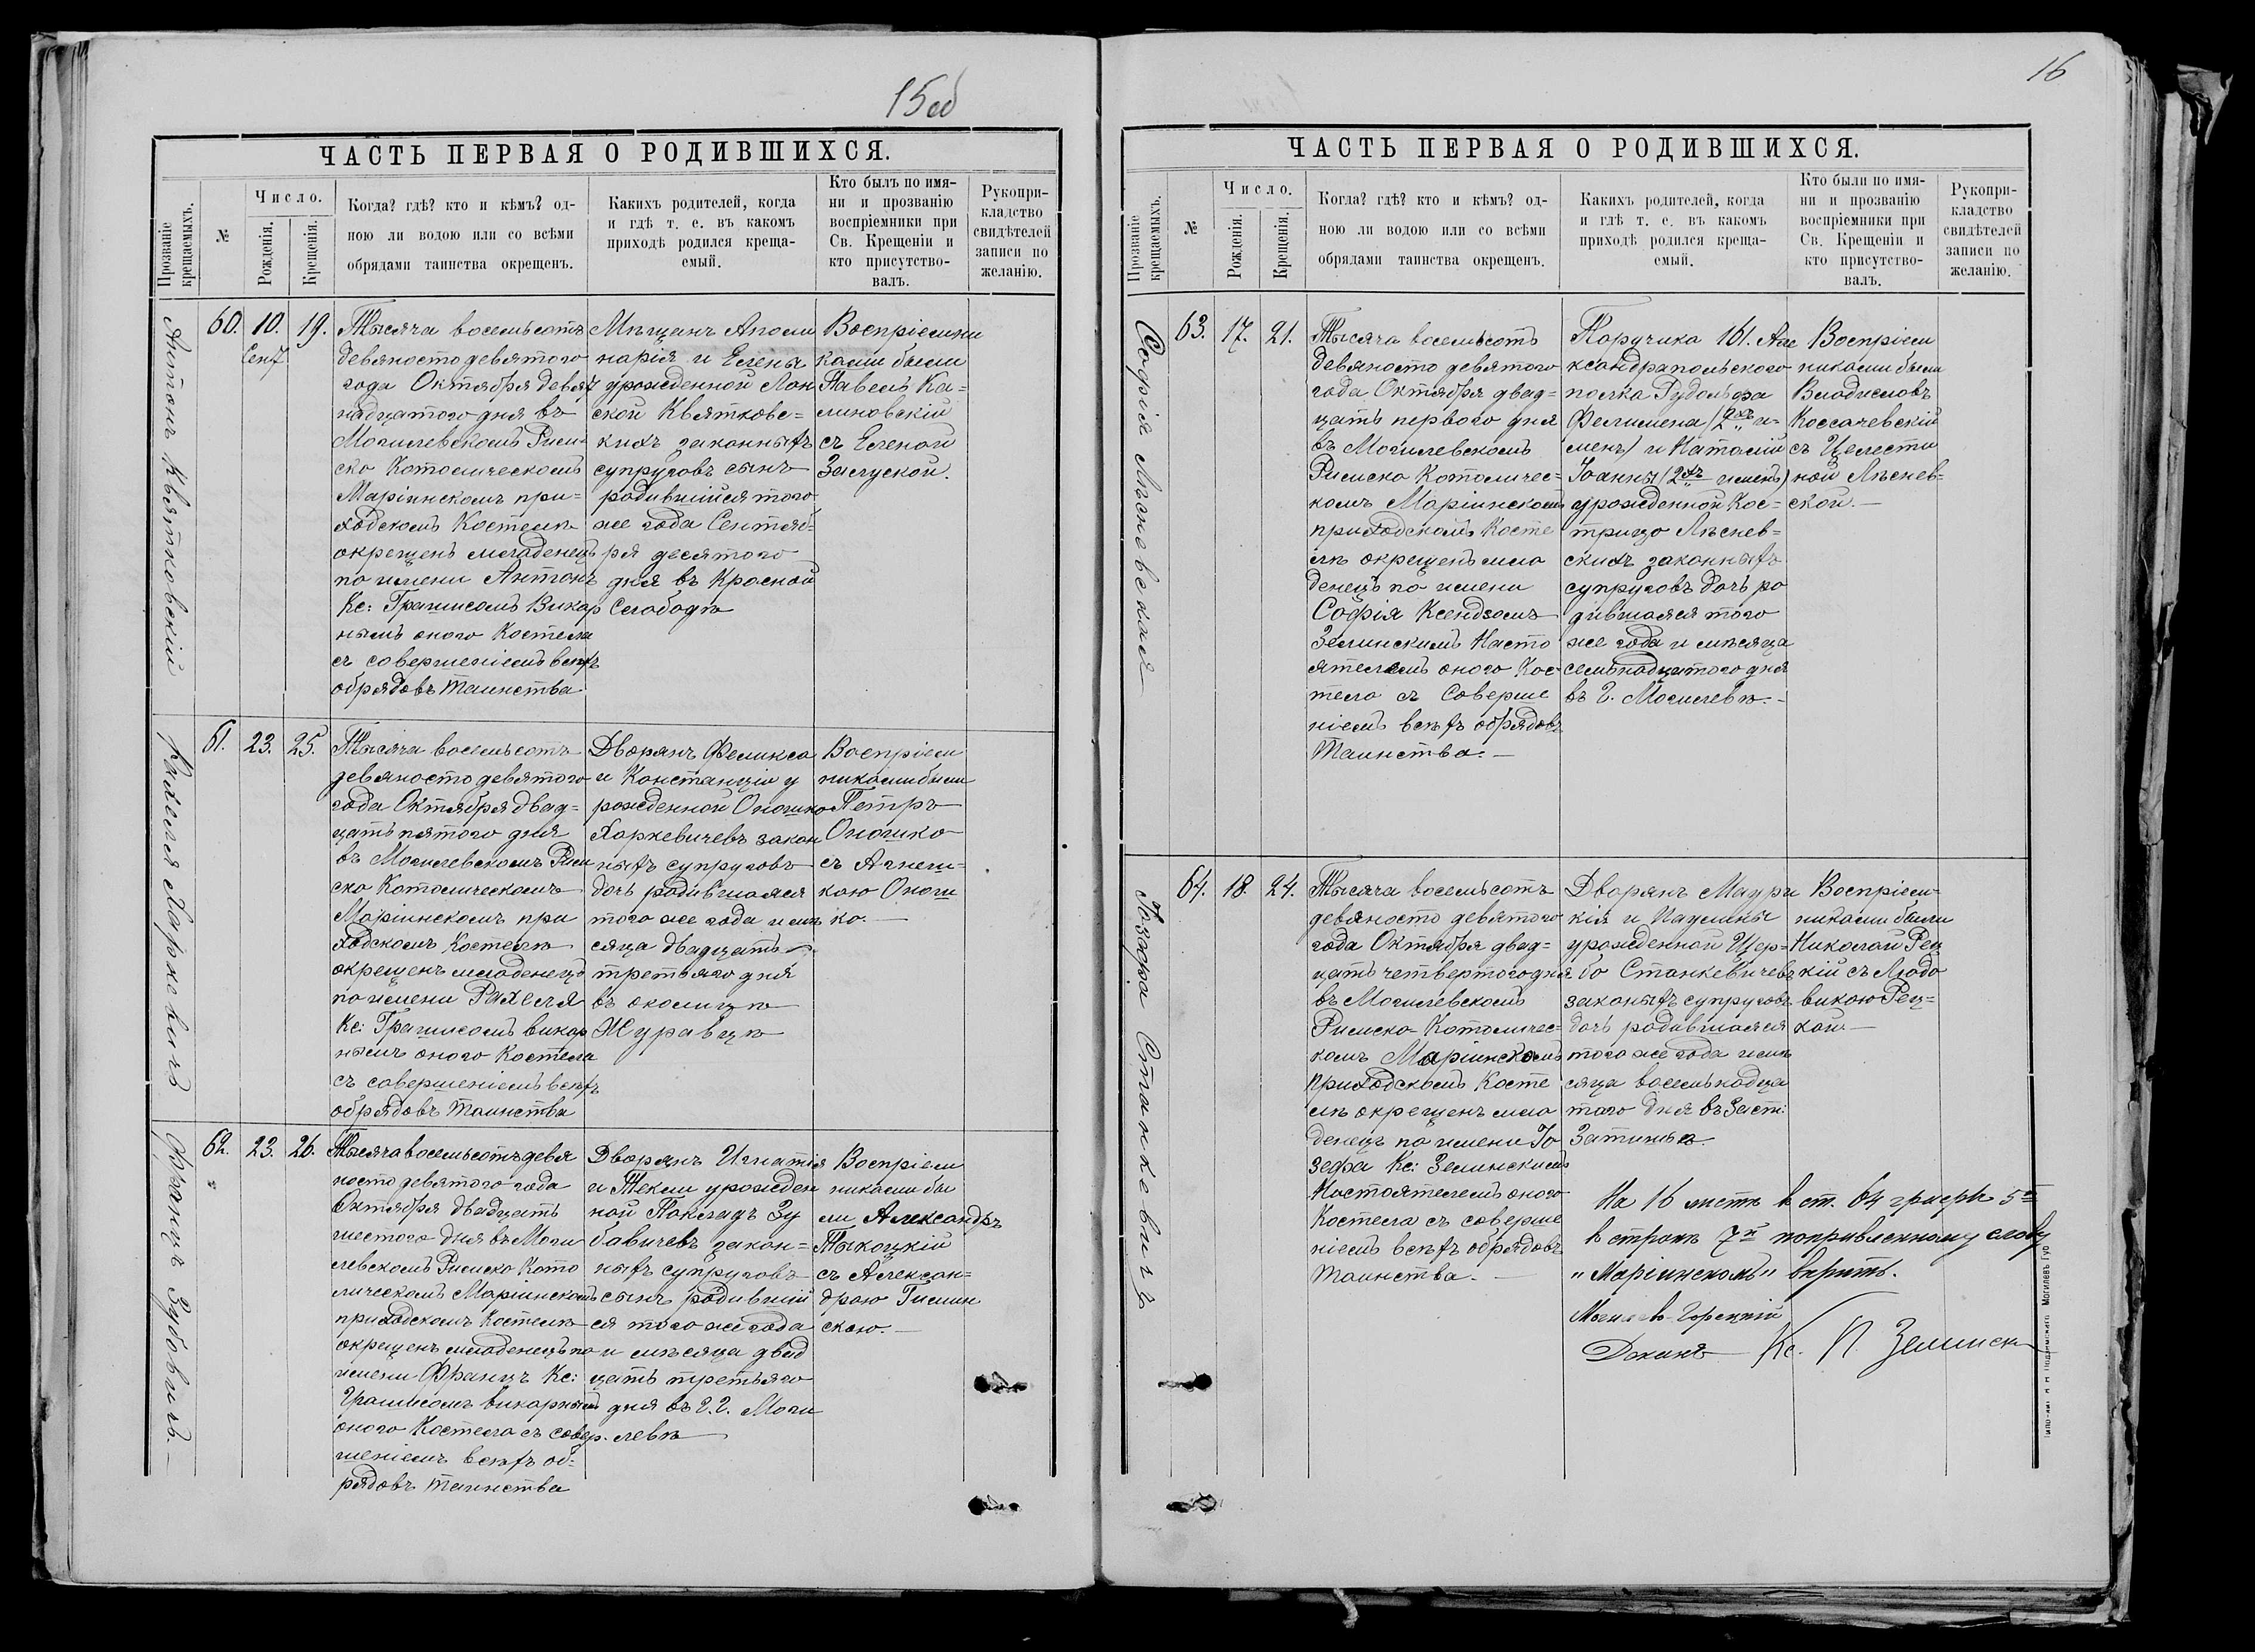 15об
ЧАСТЬ ПЕРВАЯ О РОДИВШИХСЯ.
Прозваніе крещаемыхъ.
№
Число.
Рожденія.
Крещенія.
Когда? гдѣ? кто и кѣмъ? од-
ною ли водою или со всѣми
обрядами таинства окрещенъ.
Какихъ родителей, когда
и гдѣ т. е. въ какомъ
приходѣ родился креща-
емый.
Кто былъ по имя-
ни и прозванію
воспріемники при
Св. Крещеніи и
кто присутство-
валъ.
Рукопри-
кладство
свидѣтелей
записи по
желанію.
Антонъ Квятковскій
60.
10.
Сент
19.
Тысяча восемьсотъ
девяносто девятого
года Октября девят
надцатого дня въ
Могилевскомъ Рим-
ско Католическомъ
Маріинскомъ при-
ходскомъ Костелѣ
окрещенъ младенецъ
по имени Антонъ
Кс: Грашисомъ Викар
нымъ оного Костела
съ совершеніемъ всѣхъ
обрядовъ таинства
Мѣщанъ Аполи
нарія и Елены
урожденной Лон
ской Квятковс-
кихъ законныхъ
супруговъ сынъ
родившійся того
же года Сентяб-
ря десятого
дня въ Красной
Слободѣ
Воспріемни
ками были
Павелъ Ка-
линовскій
съ Еленой
Залуской.
Рахеля Харкевичъ
61.
23.
25.
Тысяча восемьсотъ
девяносто девятого
года Октября двад-
цать пятого дня
въ Могилевскомъ Рим
ско Католическомъ
Маріинскомъ при
ходскомъ Костелѣ
окрещенъ младенецъ
по имени Рахеля
Кс: Грашисомъ викар
нымъ оного Костела
съ совершеніемъ всѣхъ
обрядовъ таинства
Дворянъ Феликса
и Констанціи у
рожденной Оношко
Харкевичевъ закон
ныхъ супруговъ
дочь родившаяся
того же года и мѣ
сяца двадцать
третьяго дня
въ околицѣ
Журавцѣ
Воспріем
никами были
Петръ
Оношко
съ Агнеш-
кою Онош
ко.
Францъ Зубовичъ.
62.
23.
26.
Тысяча восемьсотъ девя
носто девятого года
Октября двадцать
шестого дня въ Моги
левскомъ Римско Като
лическомъ Маріинскомъ
приходскомъ Костелѣ
окрещенъ младенецъ по
имени Францъ Кс:
Грашисомъ викарнымъ
оного Костела съ совер-
шеніемъ всѣхъ об-
рядовъ таинства
Дворянъ Игнатія
и Текли урожден
ной Покладъ Зу
бавичевъ закон-
ныхъ супруговъ
сынъ родивший
ся того же года
и мѣсяца двад
цать третьяго
дня въ г. г. Моги
левѣ
Воспріем
никами бы
ли Александръ
Тыкоцкій
съ Алексан-
дрою Гилин
скою.
16
ЧАСТЬ ПЕРВАЯ О РОДИВШИХСЯ.
Прозваніе крещаемыхъ.
№
Число.
Рожденія.
Крещенія.
Когда? гдѣ? кто и кѣмъ? од-
ною ли водою или со всѣми
обрядами таинства окрещенъ.
Какихъ родителей, когда
и гдѣ т. е. въ какомъ
приходѣ родился креща-
емый.
Кто были по имя-
ни и прозванію
воспріемники при
Св. Крещеніи и
кто присутство-
валъ.
Рукопри-
кладство
свидѣтелей
записи по
желанію.
Софія Лѣсневская
63.
17.
21.
Тысяча восемьсотъ
девяносто девятого
года Октября двад-
цать первого дня
въ Могилевскомъ
Римско Католичес-
комъ Маріинскомъ
приходскомъ Косте
лѣ окрещенъ мла
денецъ по имени
Софія Ксендзомъ
Зелинскимъ Насто
ятелемъ оного Кос-
тела съ соверше
ніемъ всѣхъ обрядовъ
Таинства.
Поручика 161. Але
ксандропольского
полка Рудольфа
Филимена (2хъ и-
менъ) и Наталіи
Іоанны (2хъ именъ)
урожденной Кос-
трицо Лѣснев-
скихъ законныхъ
супруговъ дочь ро
дившаяся того
же года и мѣсяца
семьнадцатого дня
въ г. Могилевѣ.
Воспріем
никами были
Владиславъ
Коссачевскій
съ Целести
ной Лѣснев-
ской.
Іозефа Станкевичъ
64.
18.
24.
Тысяча восемьсотъ
девяносто девятого
года Октября двад-
цать четвертого дня
въ Могилевскомъ
Римско Католичес-
комъ Маріинскомъ
приходскомъ Косте
лѣ окрещенъ мла
денецъ по имени Іо
зефа Кс: Зелинскимъ
Настоятелемъ оного
Костела съ соверше
ніемъ всѣхъ обрядовъ
таинства.
Дворянъ Маури
кія и Паулины
урожденной Щер-
бо Станкевичевъ
законыхъ супруговъ
дочь родившаяся
того же года и мѣ
сяца восемьнадца
того дня въ Заст:
Затишье.
Воспріем-
никами были
Николай Рец
кій съ Людо
викою Рец-
кой.
На 16 листѣ в ст. 64 графѣ 5й
в строкѣ 7й поправленному слову
"Маріинскомъ" вѣрить.
Могилев-Горецкій
Деканъ Кс. П. Зелински